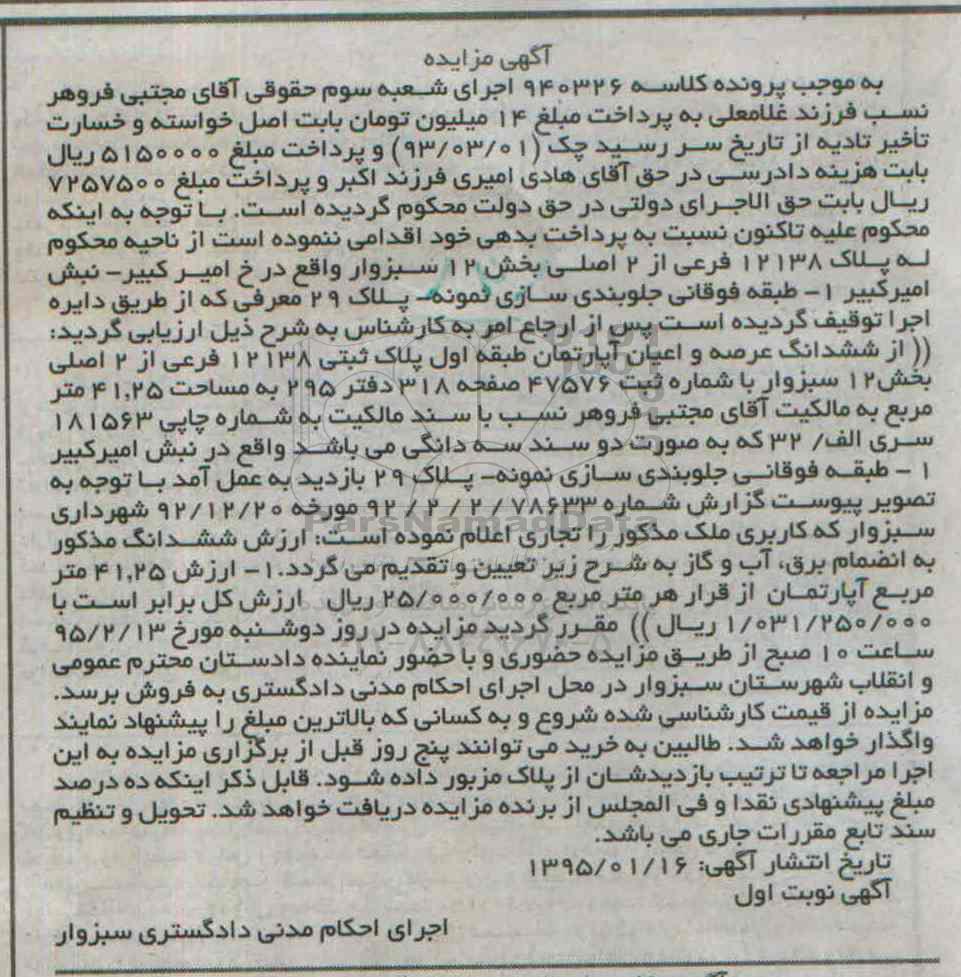 آگهی مزایده
به موجب پرونده کلاسه ۹۴۰۳۲۶ اجرای شعبه سوم حقوقی آقای مجتبی فروهر
نسب فرزند غلامعلی به پرداخت مبلغ ۱۴ میلیون تومان بابت اصل خواسته و خسارت
تأخیر تادیه از تاریخ سر رسید چک (۹۳/۰۳/۰۱) و پرداخت مبلغ ۵۱۵۰۰۰۰ ریال
بابت هزینه دادرسی در حق آقای هادی امیری فرزند اکبر و پرداخت مبلغ ۷۲۵۷۵۰۰
ریال بابت حق الاجرای دولتی در حق دولت محکوم گردیده است. با توجه به اینکه
محکوم علیه تاکنون نسبت به پرداخت بدهی خود اقدامی ننموده است از ناحیه محکوم
له پلاک ۱۲۱۳۸ فرعی از ۲ اصلی بخش ۱۲ سبزوار واقع در خ امیر کبیر- نبش
امیرکبیر ۱- طبقه فوقانی جلوبندی سازی نمونه- پلاک ۲۹ معرفی که از طریق دایره
اجرا توقیف گردیده است پس از ارجاع امر به کارشناس به شرح ذیل ارزیابی گردید:
(( از ششدانگ عرصه و اعیان آپارتمان طبقه اول پلاک ثبتی ۱۲۱۳۸ فرعی از ۲ اصلی
بخش۱۲ سبزوار با شماره ثبت ۴۷۵۷۶ صفحه ۳۱۸ دفتر ۲۹۵ به مساحت ۴۱,۲۵ متر
مربع به مالکیت آقای مجتبی فروهر نسب با سند مالکیت به شماره چاپی ۱۸۱۵۶۳
سری الف/ ۳۲ که به صورت دو سند سه دانگی می باشد واقع در نبش امیرکبیر
۱ - طبقه فوقانی جلوبندی سازی نمونه- پلاک ۲۹ بازدید به عمل آمد با توجه به
تصویر پیوست گزارش شماره ۷۸۶۳۳ / ۲ / ۲ / ۹۲ مورخه ۹۲/۱۲/۲۰ شهرداری
سبزوار که کاربری ملک مذکور را تجاری اعلام نموده است: ارزش ششدانگ مذکور
به انضمام برق، آب و گاز به شرح زیر تعیین و تقدیم می گردد.۱- ارزش ۴۱,۲۵ متر
مربع آپارتمان از قرار هر متر مربع ۲۵/۰۰۰/۰۰۰ ریال ارزش کل برابر است با
۱/۰۳۱/۲۵۰/۰۰۰ ریال )) مقرر گردید مزایده در روز دوشنبه مورخ ۹۵/۲/۱۳
ساعت ۱۰ صبح از طریق مزایده حضوری و با حضور نماینده دادستان محترم عمومی
و انقلاب شهرستان سبزوار در محل اجرای احکام مدنی دادگستری به فروش برسد.
مزایده از قیمت کارشناسی شده شروع و به کسانی که بالاترین مبلغ را پیشنهاد نمایند
واگذار خواهد شد. طالبین به خرید می توانند پنج روز قبل از برگزاری مزایده به این
اجرا مراجعه تا ترتیب بازدیدشان از پلاک مزبور داده شود. قابل ذکر اینکه ده درصد
مبلغ پیشنهادی نقدا و فی المجلس از برنده مزایده دریافت خواهد شد. تحویل و تنظیم
سند تابع مقررات جاری می باشد.
تاریخ انتشار آگهی: ۱۳۹۵/۰۱/۱۶
آگهی نوبت اول
اجرای احکام مدنی دادگستری سبزوار
ParsNamadData